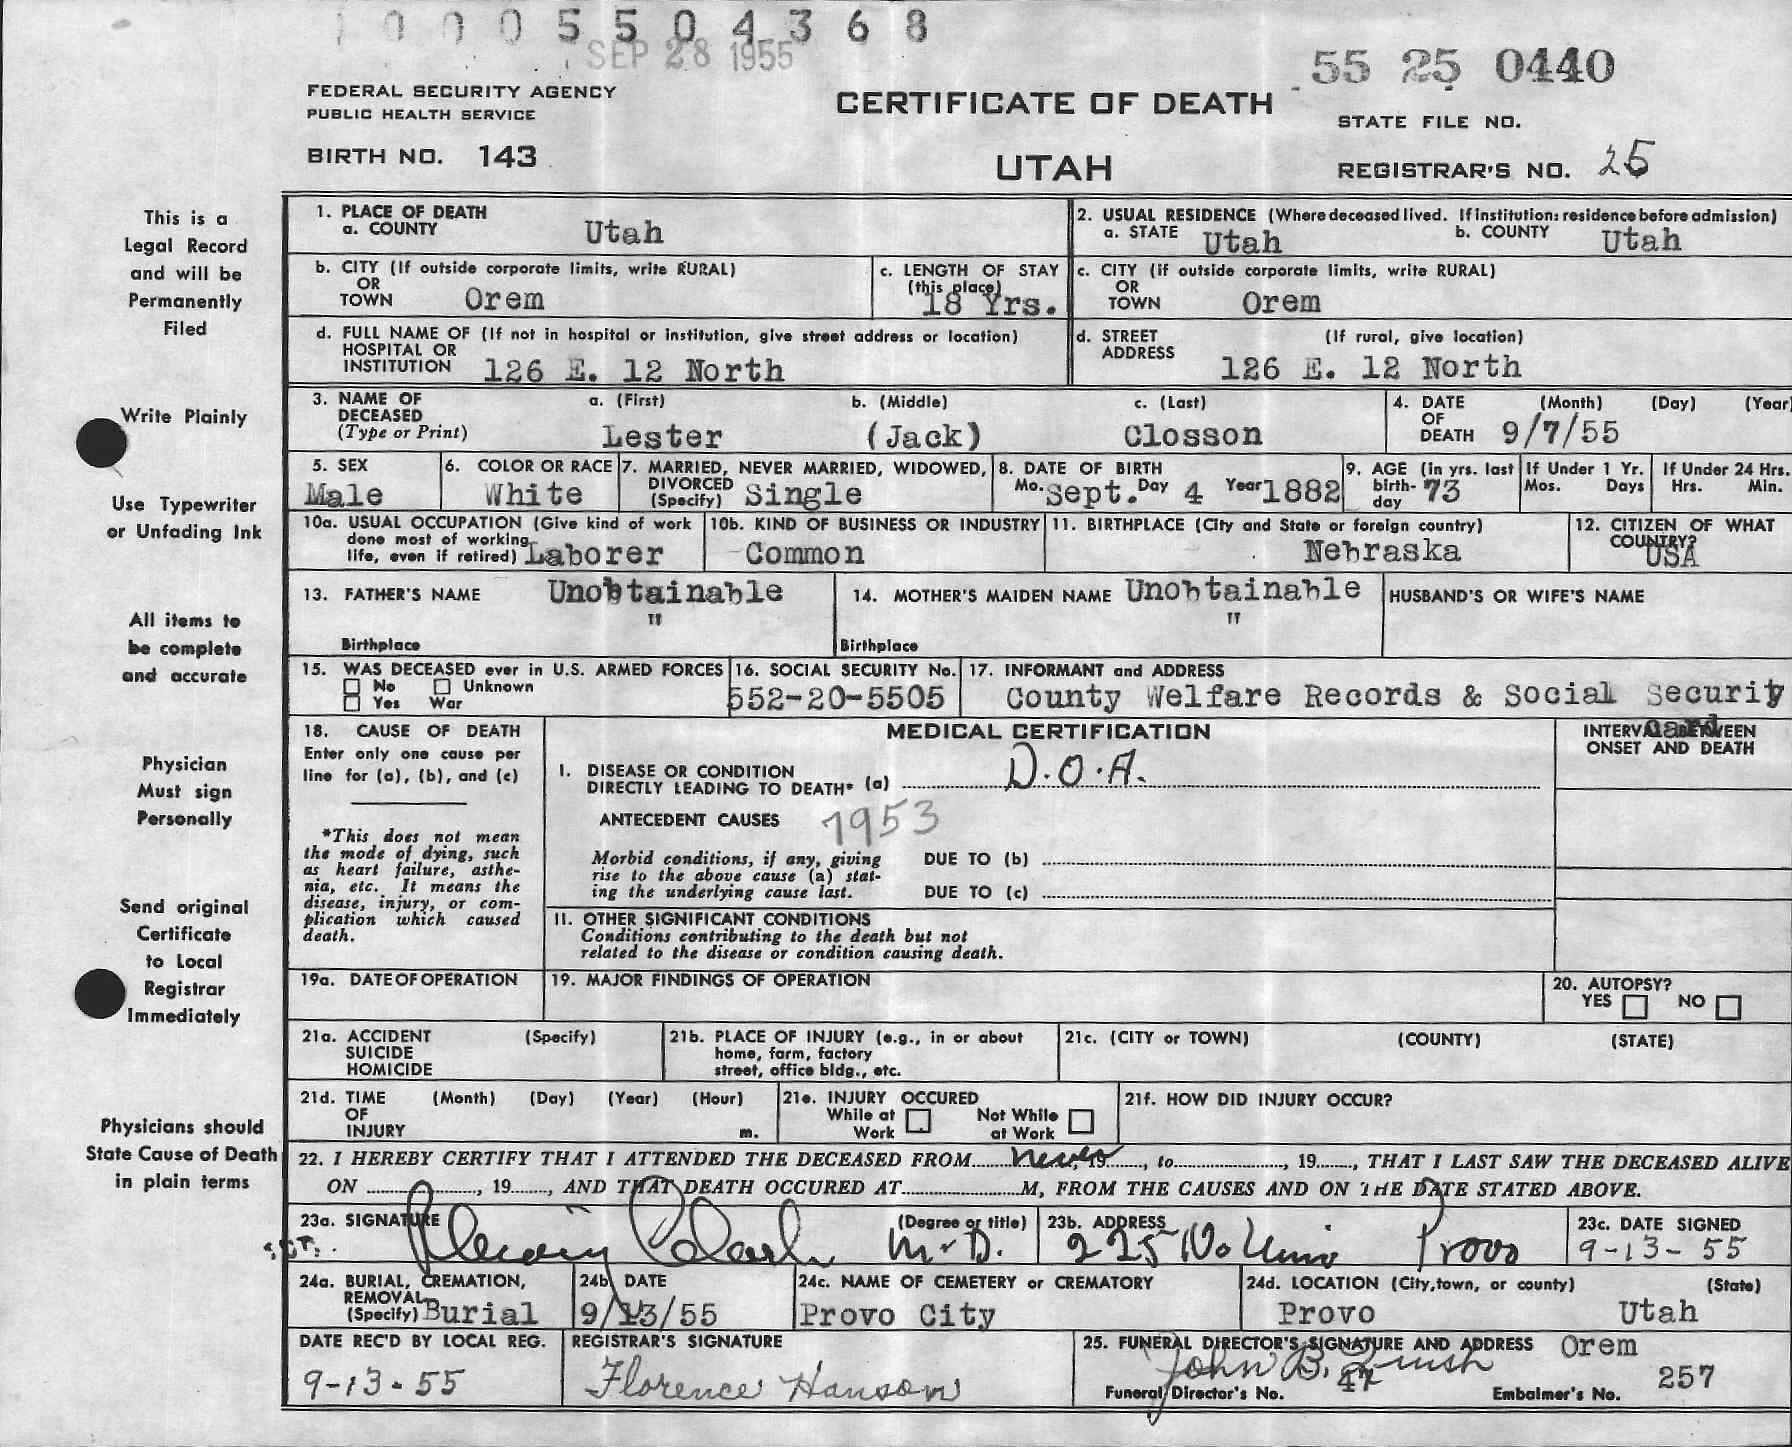 1 0 0 0 5 5 0 4 3 6 8
SEP 28 1955
55 25 0440
FEDERAL SECURITY AGENCY
PUBLIC HEALTH SERVICE
CERTIFICATE OF DEATH
STATE FILE NO.
BIRTH NO. 143
UTAH
REGISTRAR'S NO. 25
This is a
Legal Record
and will be
Permanently
Filed
Write Plainly
Use Typewriter
or Unfading Ink
All items to
be complete
and accurate
Physician
Must sign
Personally
Send original
Certificate
to Local
Registrar
Immediately
Physicians should
State Cause of Death
in plain terms
1. PLACE OF DEATH
a. COUNTY Utah
2. USUAL RESIDENCE (Where deceased lived. If institution: residence before admission)
a. STATE Utah b. COUNTY Utah
b. CITY (If outside corporate limits, write RURAL)
OR
TOWN Orem
c. LENGTH OF STAY
(this place)
18 Yrs.
c. CITY (if outside corporate limits, write RURAL)
OR
TOWN Orem
d. FULL NAME OF (If not in hospital or institution, give street address or location)
HOSPITAL OR
INSTITUTION 126 E. 12 North
d. STREET (If rural, give location)
ADDRESS
126 E. 12 North
3. NAME OF a. (First) b. (Middle) c. (Last)
DECEASED
(Type or Print) Lester (Jack) Closson
4. DATE (Month) (Day) (Year
OF
DEATH 9/7/55
5. SEX
Male
6. COLOR OR RACE
White
7. MARRIED, NEVER MARRIED, WIDOWED,
DIVORCED
(Specify) Single
8. DATE OF BIRTH
Mo. Sept. Day 4 Year 1882
9. AGE (in yrs. last
birth-
day 73
If Under 1 Yr.
Mos. Days
If Under 24 Hrs.
Hrs. Min.
10a. USUAL OCCUPATION (Give kind of work
done most of working
life, even if retired) Laborer
10b. KIND OF BUSINESS OR INDUSTRY
Common
11. BIRTHPLACE (City and State or foreign country)
Nebraska
12. CITIZEN OF WHAT
COUNTRY?
USA
13. FATHER'S NAME Unobtainable
"
Birthplace
14. MOTHER'S MAIDEN NAME Unobtainable
"
Birthplace
HUSBAND'S OR WIFE'S NAME
15. WAS DECEASED ever in U.S. ARMED FORCES
No Unknown
Yes War
16. SOCIAL SECURITY No.
552-20-5505
17. INFORMANT and ADDRESS
County Welfare Records & Social Security
card
18. CAUSE OF DEATH
Enter only one cause per
line for (a), (b), and (c)
*This does not mean
the mode of dying, such
as heart failure, asthe-
nia, etc. It means the
disease, injury, or com-
plication which caused
death.
MEDICAL CERTIFICATION
INTERVAL BETWEEN
ONSET AND DEATH
I. DISEASE OR CONDITION
DIRECTLY LEADING TO DEATH* (a) D.O.A.
ANTECEDENT CAUSES 7953
Morbid conditions, if any, giving
rise to the above cause (a) stat-
ing the underlying cause last.
DUE TO (b)
DUE TO (c)
II. OTHER SIGNIFICANT CONDITIONS
Conditions contributing to the death but not
related to the disease or condition causing death.
19a. DATE OF OPERATION
19. MAJOR FINDINGS OF OPERATION
20. AUTOPSY?
YES NO
21a. ACCIDENT (Specify)
SUICIDE
HOMICIDE
21b. PLACE OF INJURY (e.g., in or about
home, farm, factory
street, office bldg., etc.
21c. (CITY or TOWN) (COUNTY) (STATE)
21d. TIME (Month) (Day) (Year) (Hour)
OF
INJURY m.
21e. INJURY OCCURED
While at Work Not While at Work
21f. HOW DID INJURY OCCUR?
22. I HEREBY CERTIFY THAT I ATTENDED THE DECEASED FROM never, 19, to, 19, THAT I LAST SAW THE DECEASED ALIVE
ON, 19, AND THAT DEATH OCCURED AT M, FROM THE CAUSES AND ON THE DATE STATED ABOVE.
23a. SIGNATURE (Degree or title)
Clark M.D.
23b. ADDRESS
225 No Univ Provo
23c. DATE SIGNED
9-13-55
24a. BURIAL, CREMATION,
REMOVAL
(Specify) Burial
24b. DATE
9/13/55
24c. NAME OF CEMETERY or CREMATORY
Provo City
24d. LOCATION (City, town, or county) (State)
Provo Utah
DATE REC'D BY LOCAL REG.
9-13-55
REGISTRAR'S SIGNATURE
Florence Hanson
25. FUNERAL DIRECTOR'S SIGNATURE AND ADDRESS Orem
John B.
Funeral Director's No. 47 Embalmer's No. 257